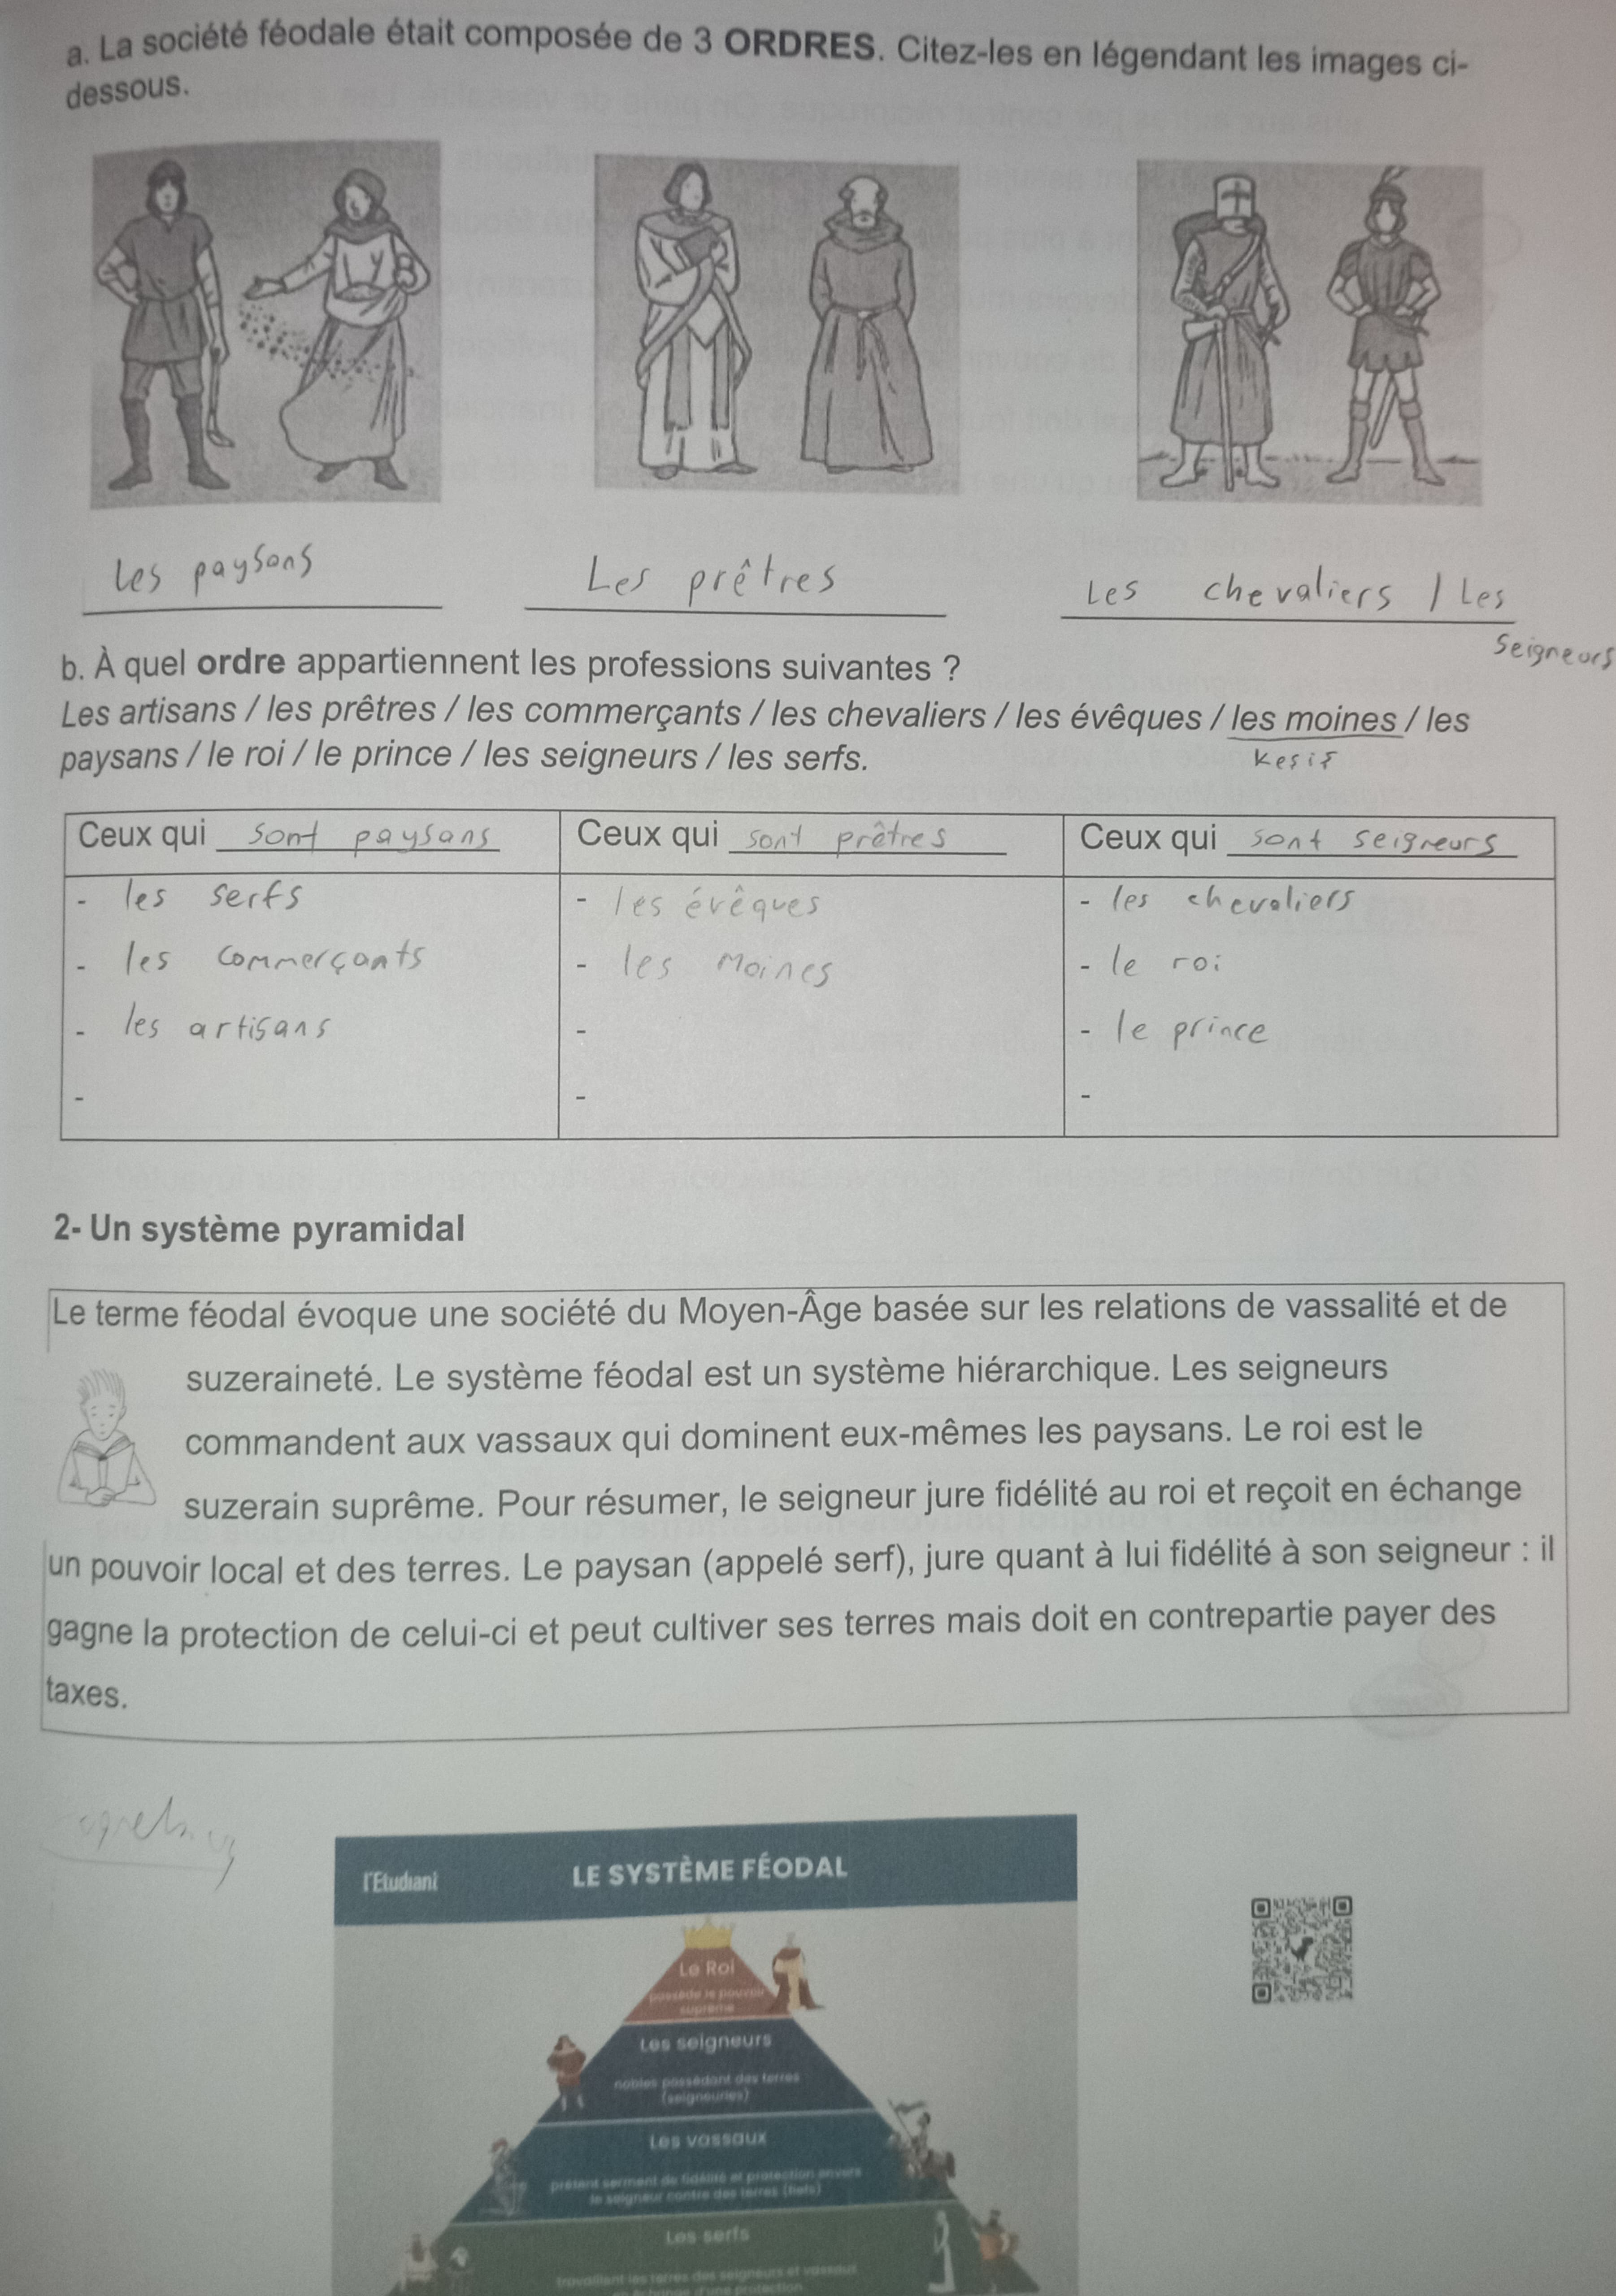 a. La société féodale était composée de 3 ORDRES. Citez-les en légendant les images ci-
dessous.
les paysans
Les prêtres
Les chevaliers / Les
Seigneurs
b. À quel ordre appartiennent les professions suivantes ?
Les artisans / les prêtres / les commerçants / les chevaliers / les évêques / les moines / les
keşiş
paysans / le roi / le prince / les seigneurs / les serfs.
Ceux qui sont paysans
- les serfs
- les commerçants
- les artisans
-
Ceux qui sont prêtres
- les évêques
- les moines
-
-
Ceux qui sont seigneurs
- les chevaliers
- le roi
- le prince
-
2- Un système pyramidal
Le terme féodal évoque une société du Moyen-Âge basée sur les relations de vassalité et de
suzeraineté. Le système féodal est un système hiérarchique. Les seigneurs
commandent aux vassaux qui dominent eux-mêmes les paysans. Le roi est le
suzerain suprême. Pour résumer, le seigneur jure fidélité au roi et reçoit en échange
un pouvoir local et des terres. Le paysan (appelé serf), jure quant à lui fidélité à son seigneur : il
gagne la protection de celui-ci et peut cultiver ses terres mais doit en contrepartie payer des
taxes.
l'Etudiant
LE SYSTÈME FÉODAL
Le Roi
possède le pouvoir
suprême
Les seigneurs
nobles possédant des terres
(seigneuries)
Les vassaux
prêtent serment de fidélité et protection envers
le seigneur contre des terres (fiefs)
Les serfs
travaillent les terres des seigneurs et vassaux
en échange d'une protection